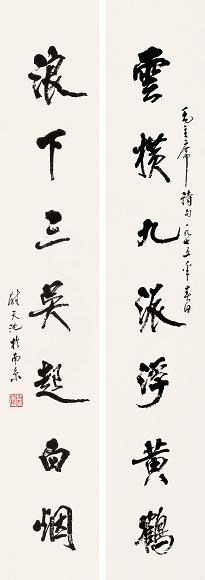 雲横九派浮黄鶴
毛主席詩句一九七五年春日
浪下三吴起白烟
尉天池於南京